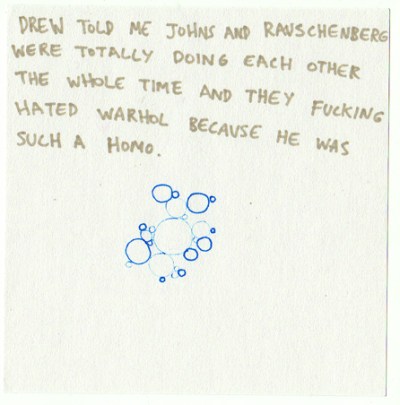 DREW TOLD ME JOHNS AND RAUSCHENBERG
WERE TOTALLY DOING EACH OTHER
THE WHOLE TIME AND THEY FUCKING
HATED WARHOL BECAUSE HE WAS
SUCH A HOMO.